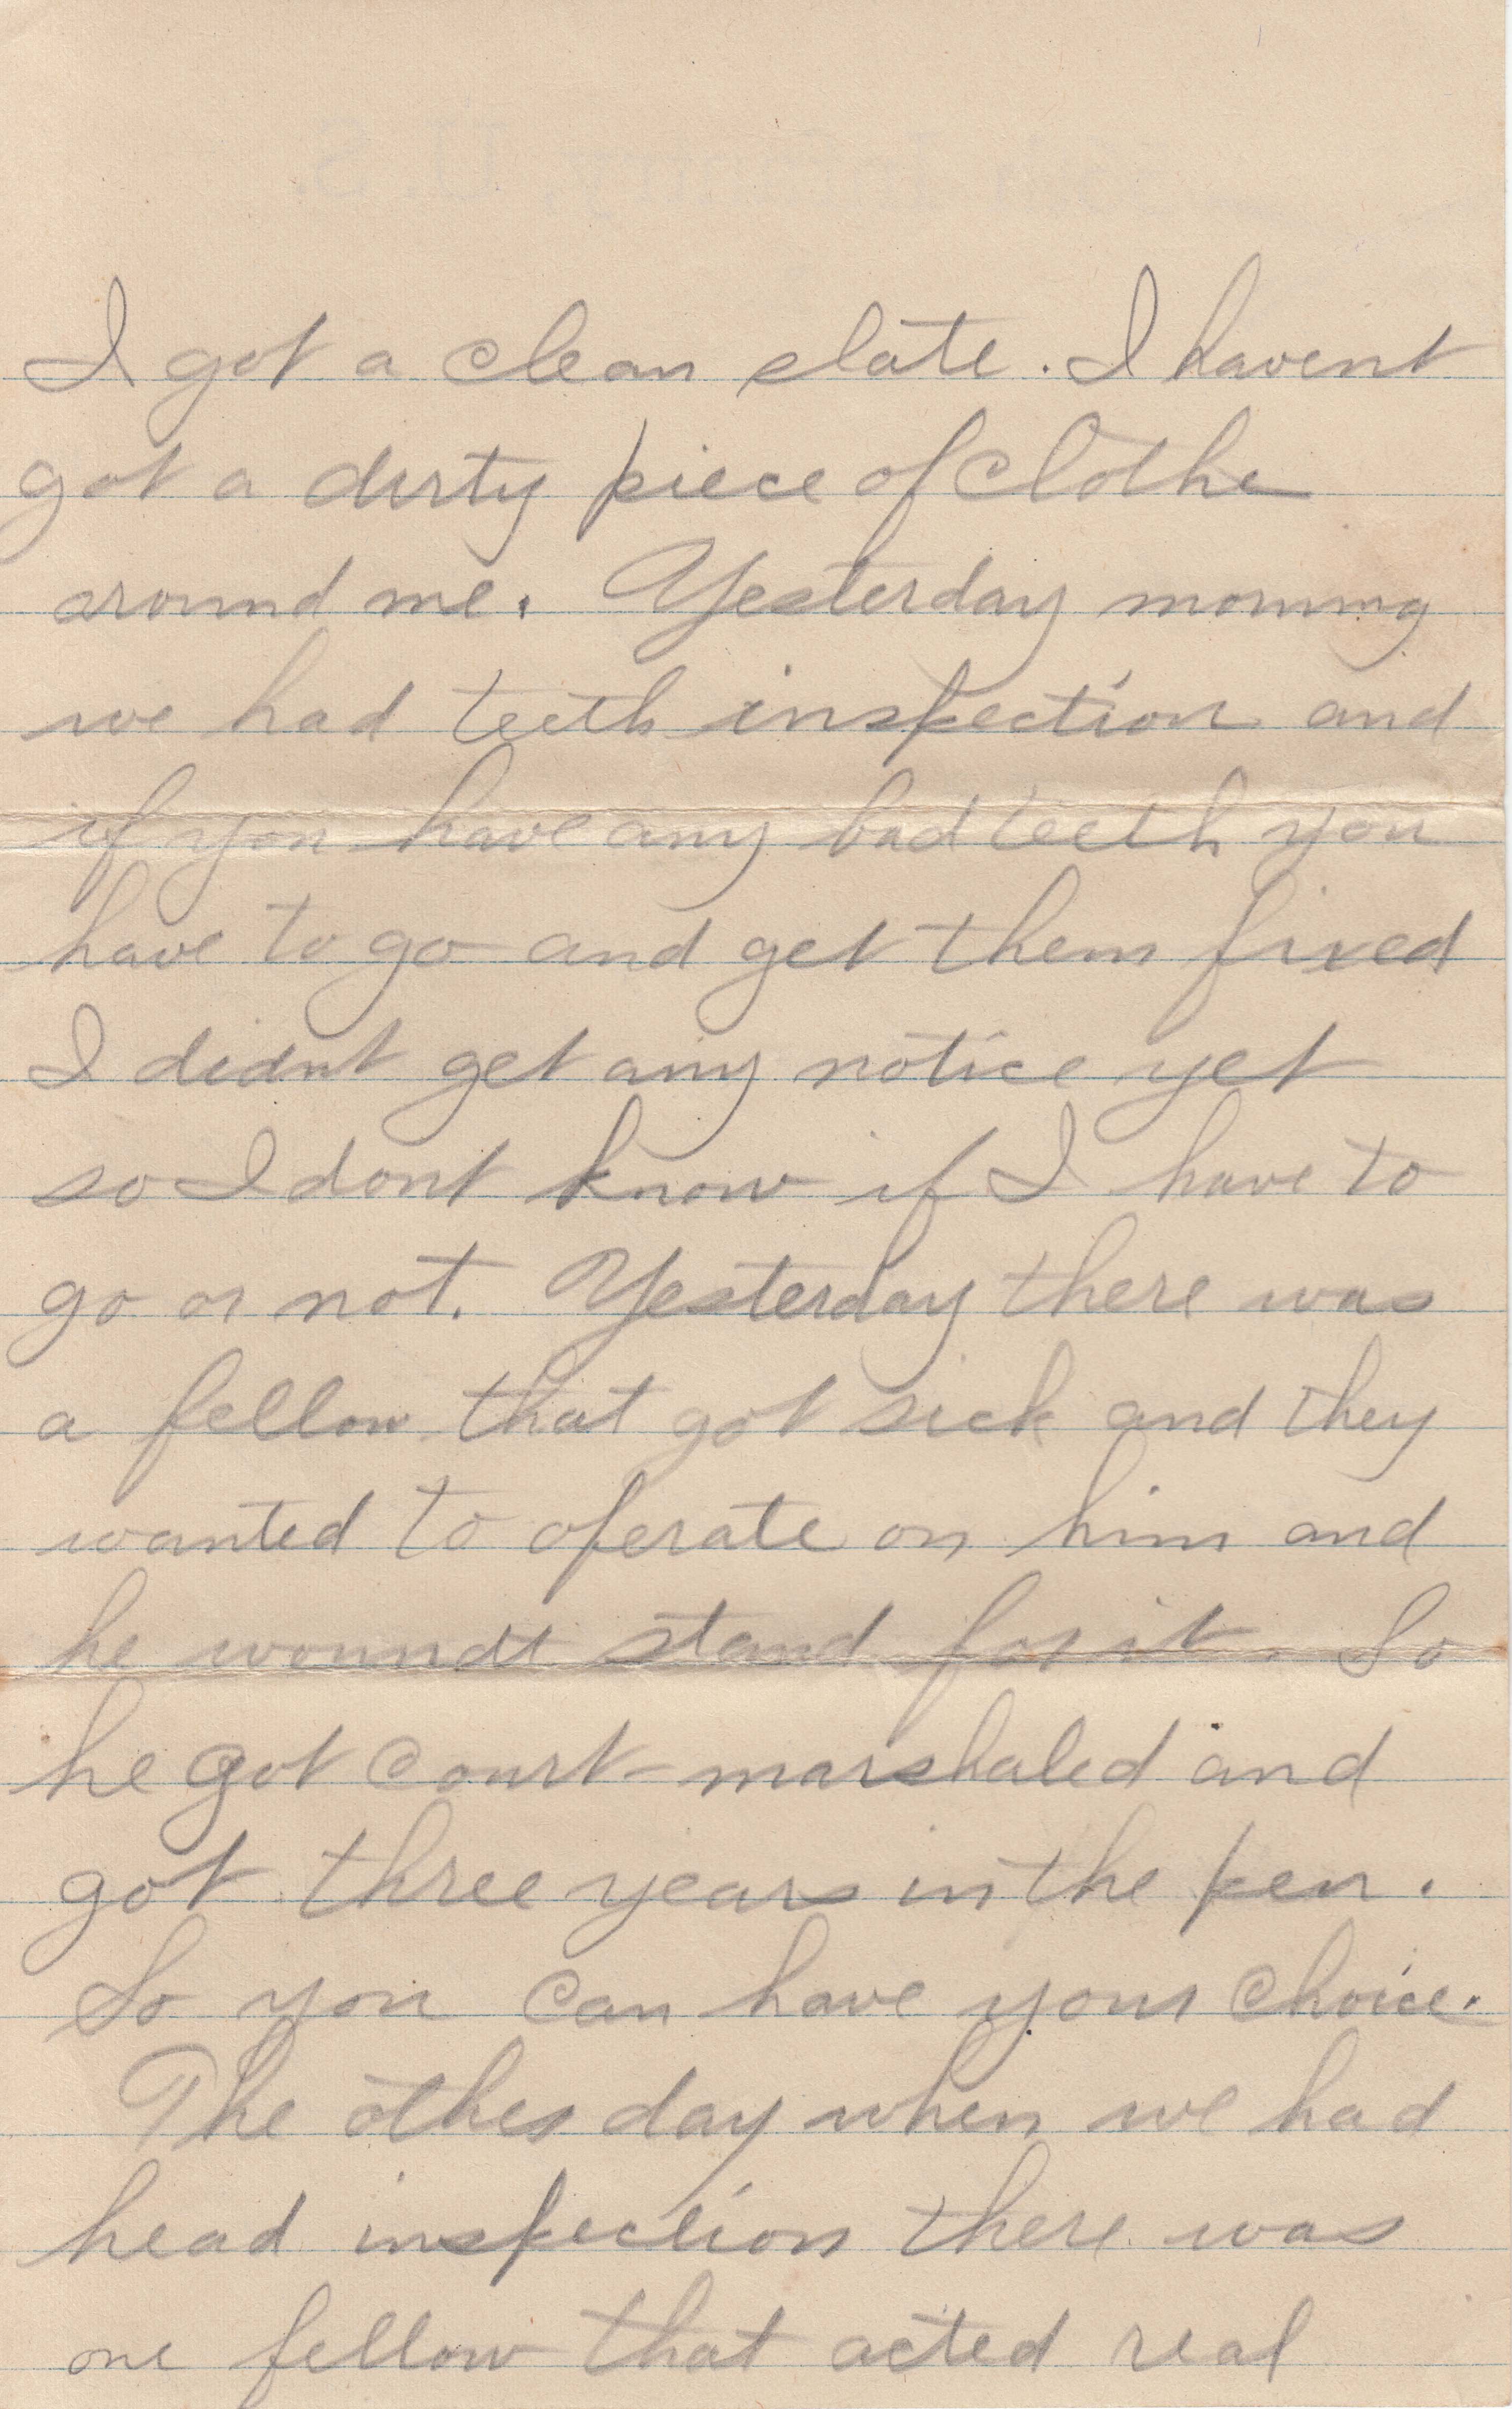 I got a clean slate. I havent
got a dirty piece of clothe
around me. Yesterday morning
we had teeth inspection and
if you have any bad teeth you
have to go and get them fixed
I didnt get any notice yet
so I dont know if I have to
go or not. Yesterday there was
a fellow that got sick and they
wanted to operate on him and
he woundt stand for it. So
he got court-marshaled and
got three years in the pen.
So you can have your choice.
The other day when we had
head inspection there was
one fellow that acted real